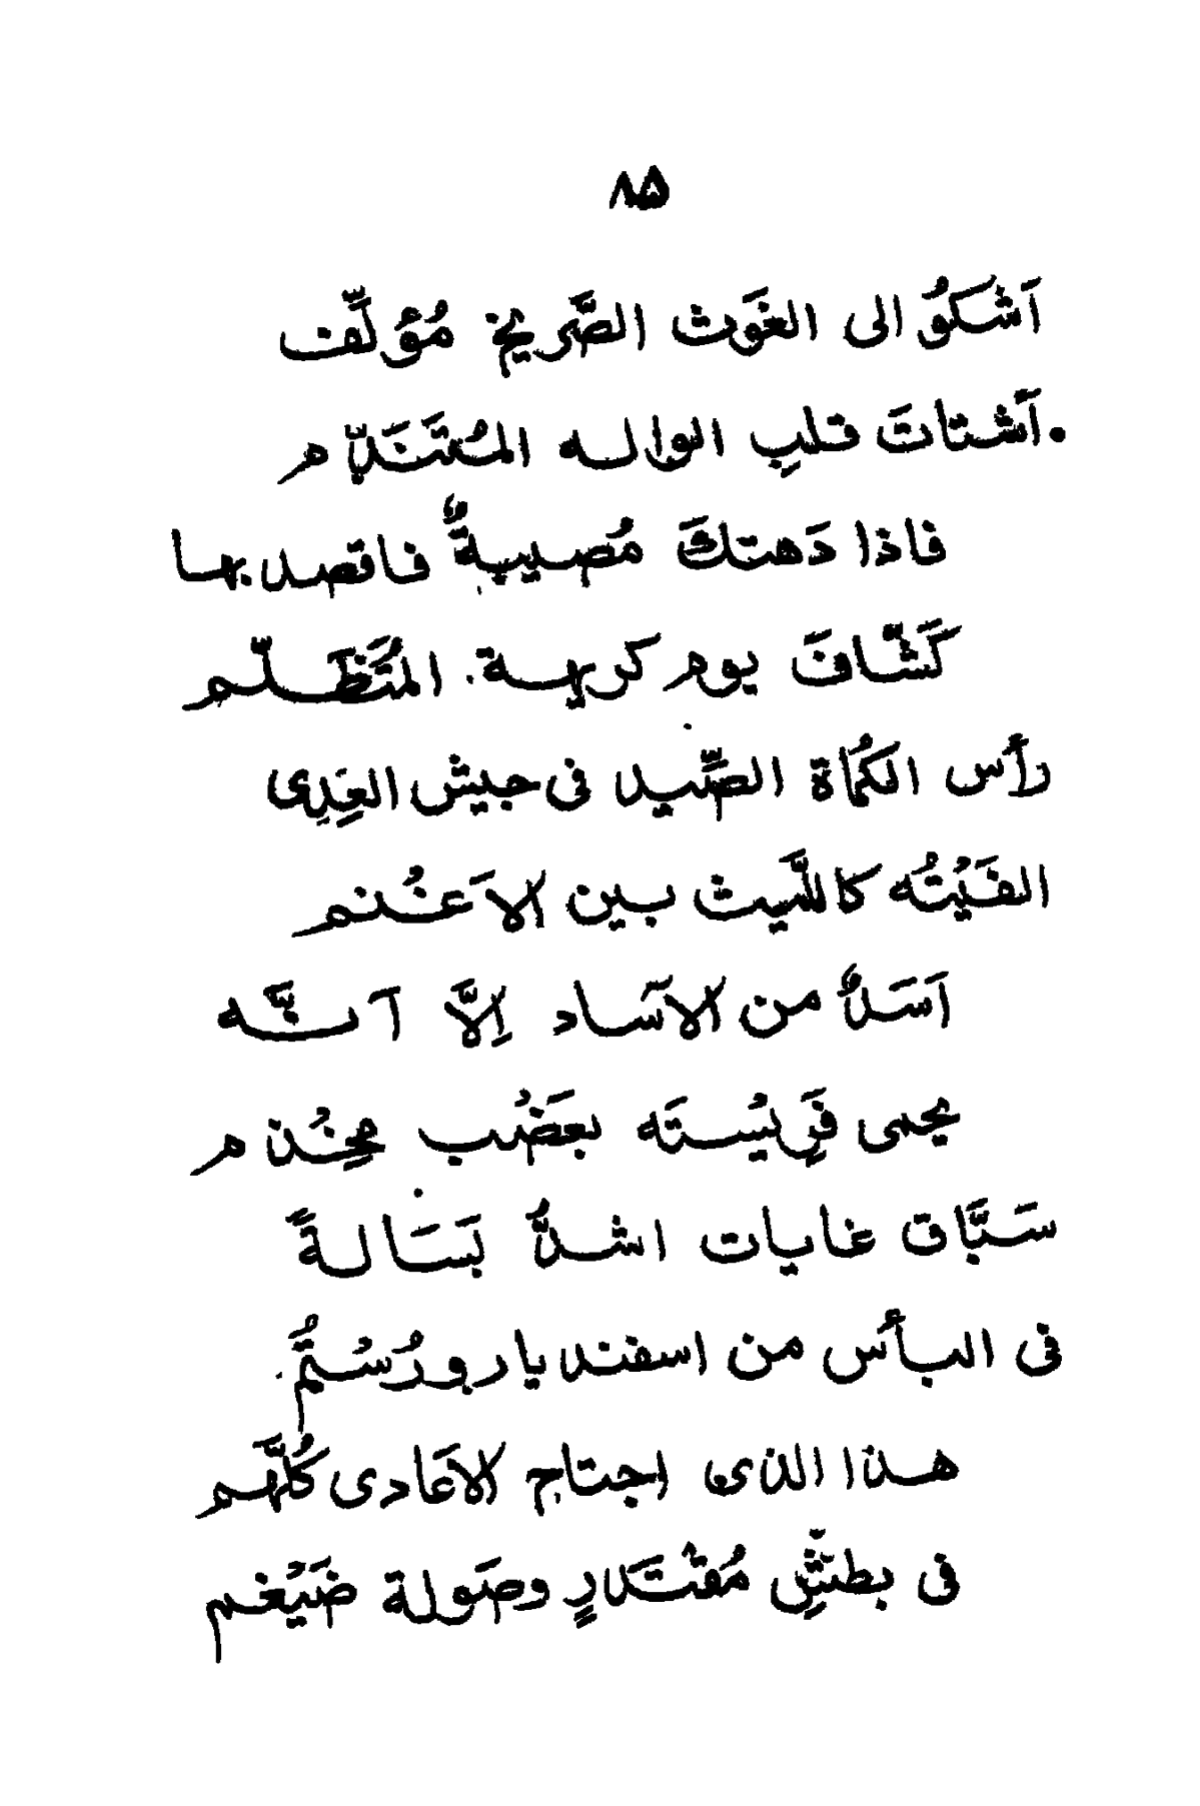 ۸۵
اَشْكَوُ الى الغَوث الصَّريخ مُؤلِّف
اَشتاتَ قلبِ الواله المُتَنَدِّم
فاذا دَهتكَ مُصيبةٌ فاقصد بها
كَشّافَ يوم كريهة المُتَظَلّم
رأس الكُماة الصِّيد فى جيش العِدِى
الفَيْتُه كاللَّيث بين الاَغْنُم
اَسَدٌ من الآساد اِلاَّ اَنَّه
يحمى فَرِيْستَه بعَضْب مِخْذم
سَبَّاق غايات اشدُّ بَسَالةً
فى البأس من اسفنديار و رُسْتُمُ
هذا الذى اجتاح الاَعادى كُلَّهُم
فى بطشِ مُقْتَدرٍ وصَولة ضَيْغم